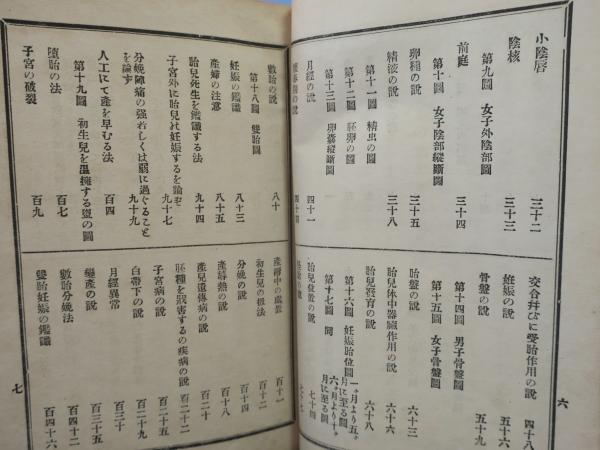 小陰唇 三十二
陰核 三十三
第九圖 女子外陰部圖
前庭 三十四
第十圖 女子陰部縱斷圖
卵種の說 三十五
精液の說 三十八
第十一圖 精虫の圖
第十二圖 胚卵の圖
第十三圖 卵囊縱斷圖
月經の說 四十一
交合幷びに受胎作用の說 四十八
妊娠の說 五十六
骨盤の說 五十九
第十四圖 男子骨盤圖
第十五圖 女子骨盤圖
胎盤の說 六十三
胎兒体中器臓作用の說 六十六
胎兒發育の說 六十八
第十六圖 妊娠胎位圖 一ヶ月より五ヶ月に至る圖
第十七圖 同 六ヶ月より十ヶ月に至る圖
胎兒位置の說 七十四
六
數胎の說 八十
第十八圖 雙胎圖
妊娠の鑑識 八十三
產婦の注意 八十五
胎兒死生を鑑識する法 九十四
子宮外に胎兒は妊娠するを論ず 九十七
分娩陣痛の强若しくは弱に過ぐることを論ず 九十九
人工にて產を早むる法 百四
第十九圖 初生兒を溫擁する盥の圖
墮胎の法 百七
子宮の破裂 百九
產褥中の處置 百十一
初生兒の扱法 百十二
分娩の說 百十四
產褥熱の說 百十八
產兒遺傳病の說 百二十
胚種を戕害するの疾病の說 百二十二
子宮病の說 百二十六
白帶下の說 百二十九
月經異常 百三十
變產の說 百三十五
數胎分娩法 百四十四
雙胎妊娠の鑑識 百四十六
七